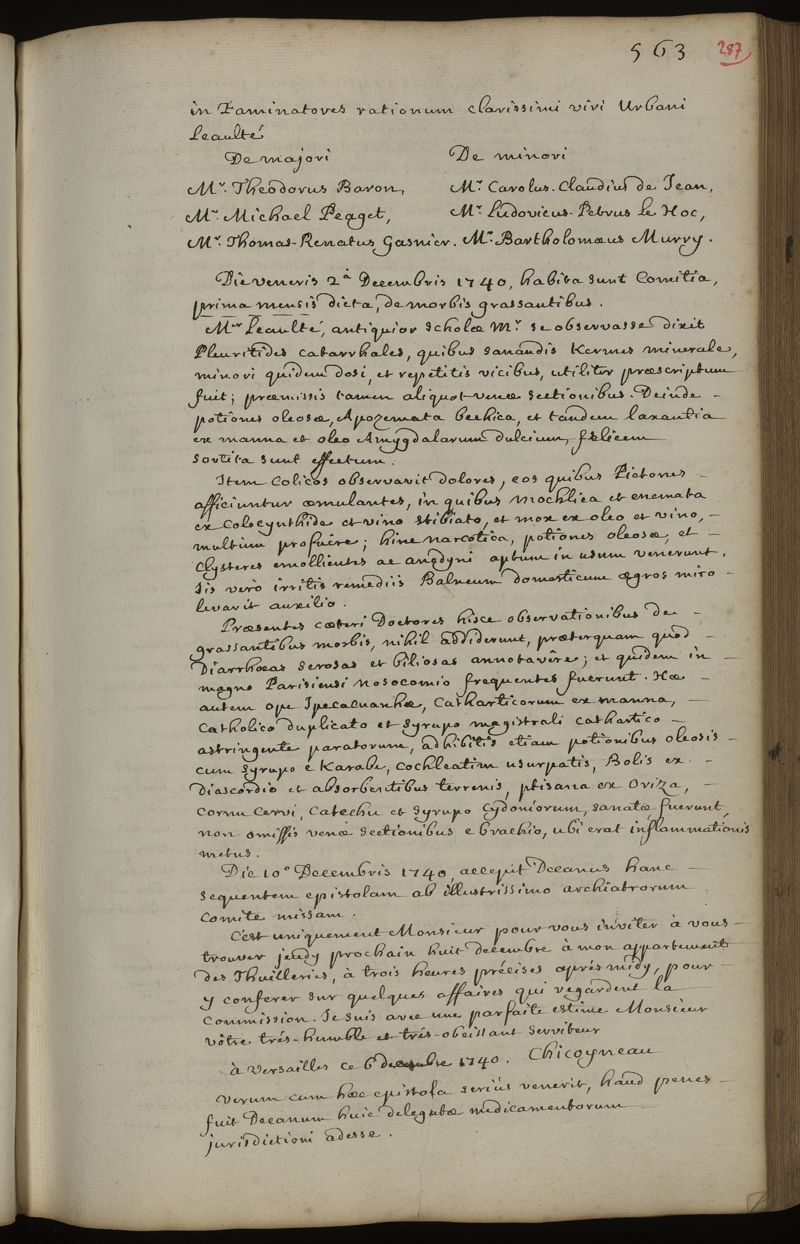 563 287
in Examinatores rationum clarissimi viri Urbani
Leaulté
De majori De minori
Mr. Theodorus Baron, Mr. Carolus-Claudius de Jean,
Mr. Michael Peaget, Mr. Ludovicus-Petrus Le Hoc,
Mr. Thomas-Renatus Gasnier. Mr. Bartholomæus Murry.
Die veneris 2ª Decembris 1740, habita sunt Comitia,
prima mensis dicta, de morbis grassantibus.
Mer Leaulté, antiquior scholæ Mr. se observasse dixit
Pleuritides catarrhales, quibus sanandis Kermes minerale,
minori quidem dosi, et repetitis vicibus, utiliter præscriptum
fuit; præmissis tamen aliquot venæ sectionibus. Deinde -
potiones oleosæ, Apozemata bechica, et tandem laxantia
ex manna et oleo Amygdalarum dulcium, felicem
sortita sunt effectum.
Item Colicos observavit dolores, eos quibus Pictones -
afficiuntur æmulantes, in quibus mochlica et enemata
ex Colocynthide et vino stibiato, et mox ex oleo et vino, -
multum profuêre; hinc narcotica, potiones oleosæ, et -
Clysteres emollientes ac anodyni aptum in usum venerunt.
Iis verò irritis remediis Balneum domesticum ægros miro -
levavit auxilio.
Præsentes cæteri Doctores hisce observationibus de -
grassantibus morbis, nihil addiderunt, præterquam quod -
Diarrhœas serosas et biliosas annotavêre; et quidem in -
magno Parisiensi nosocomio frequentes fuerunt. Hæ -
autem ope Ipecacuanhæ, Catharticorum ex manna, -
Catholico duplicato et syrupo magistrali cathartico -
astringente paratorum, adhibitis etiam potionibus oleosis -
cum syrupo è Karabe, cochleatim usurpatis, Bolis ex -
diascordio et absorbentibus terrenis, ptisana ex Oriza, -
Cornu Cervi, Catechu et syrupo Cydoniorum, sanatæ fuerunt,
non omissis venæ sectionibus e brachio, ubi erat inflammationis
metus.
Die 10° Decembris 1740, accepit Decanus hanc -
sequentem epistolam ab illustrissimo archiatrorum
Comite missam.
C'est uniquement Monsieur pour vous inviter à vous -
trouver jeudy prochain huit decembre à mon appartement
des Thuilleries, à trois heures précises aprés midy, pour
y conferer sur quelques affaires qui regardent la
Commission. Je suis avec une parfaite estime Monsieur
vôtre trés-humble et trés-obeissant serviteur
à Versailles ce 6 decembre 1740. Chicoyneau
Verum cum hæc epistola seriùs venerit, haud penes -
fuit Decanum huic delegatæ medicamentorum -
jurisdictioni adesse.